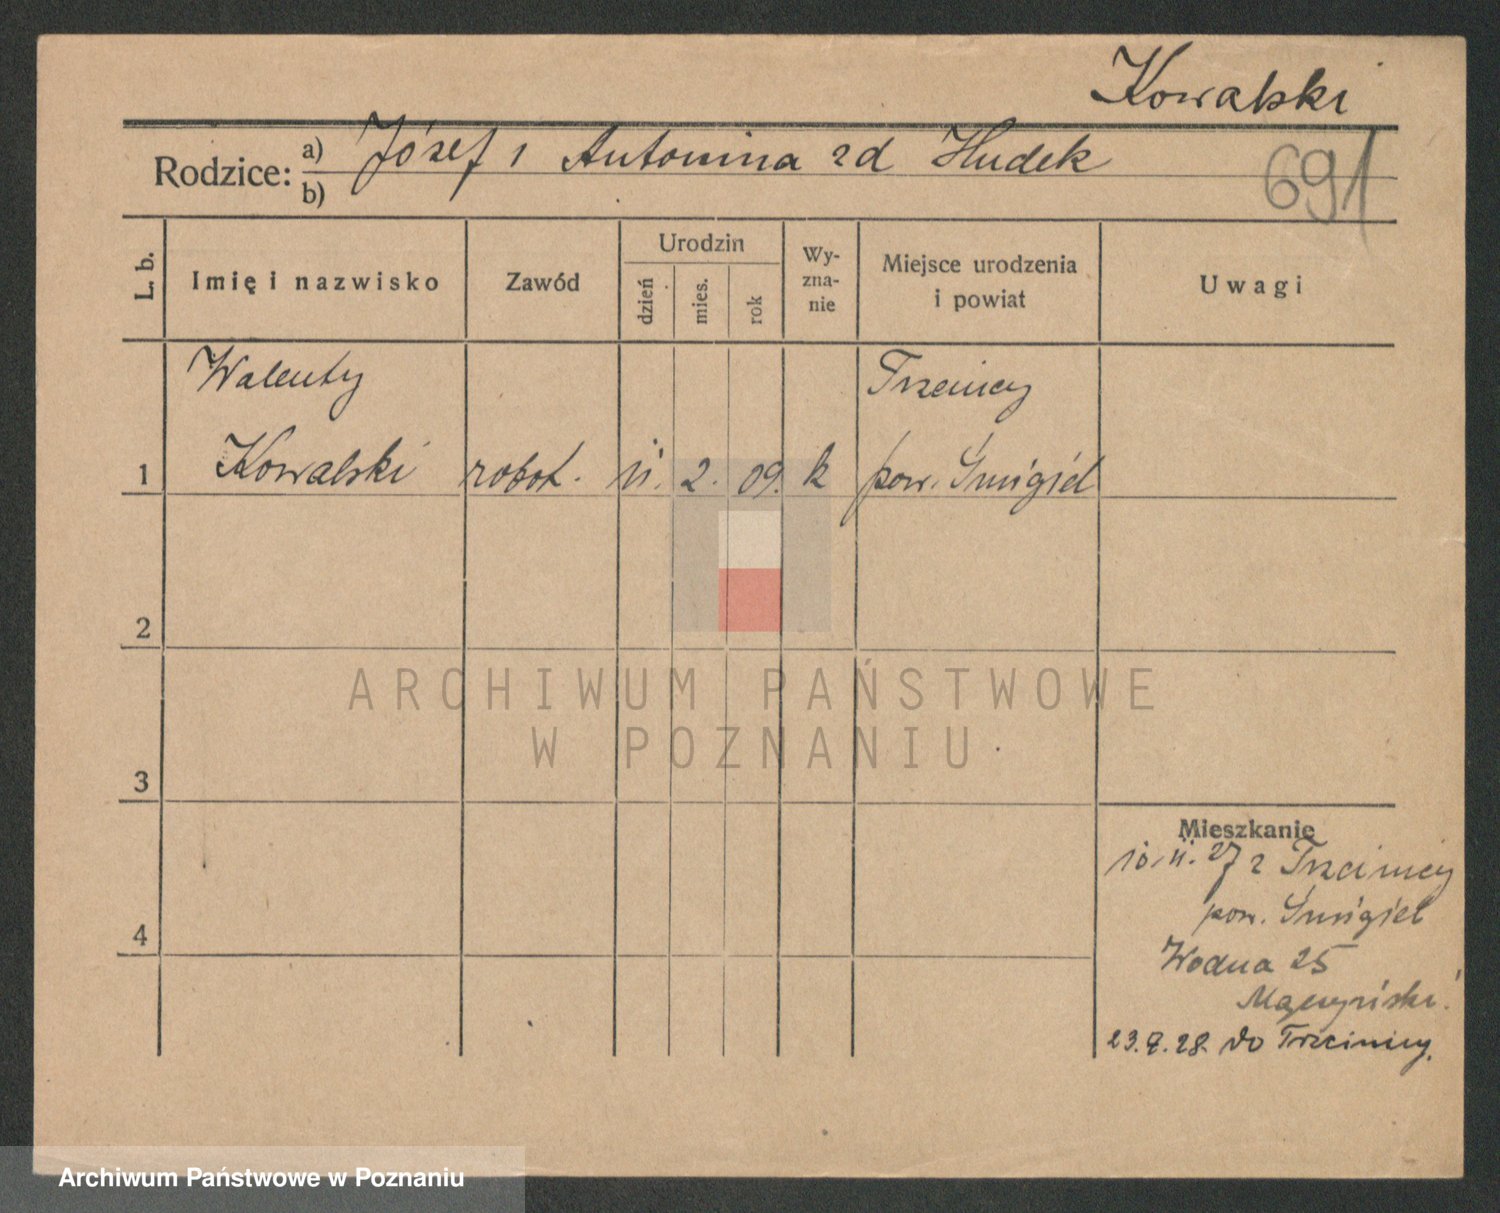 Kowalski
Rodzice: a) Józef i Antonina zd Hudek
b)
691
L. b. Imię i nazwisko Zawód Urodzin dzień mies. rok Wy-zna-nie Miejsce urodzenia i powiat Uwagi
Walenty Trzcinicy
1 Kowalski robot. 11. 2. 09. k pow. Śmigiel
2
ARCHIWUM PAŃSTWOWE
W POZNANIU
3
Mieszkanie
10. 11. 27 z Trzcinicy
pow. Śmigiel
4
Wodna 25
23. 9. 28. do Trzcinicy.
Archiwum Państwowe w Poznaniu